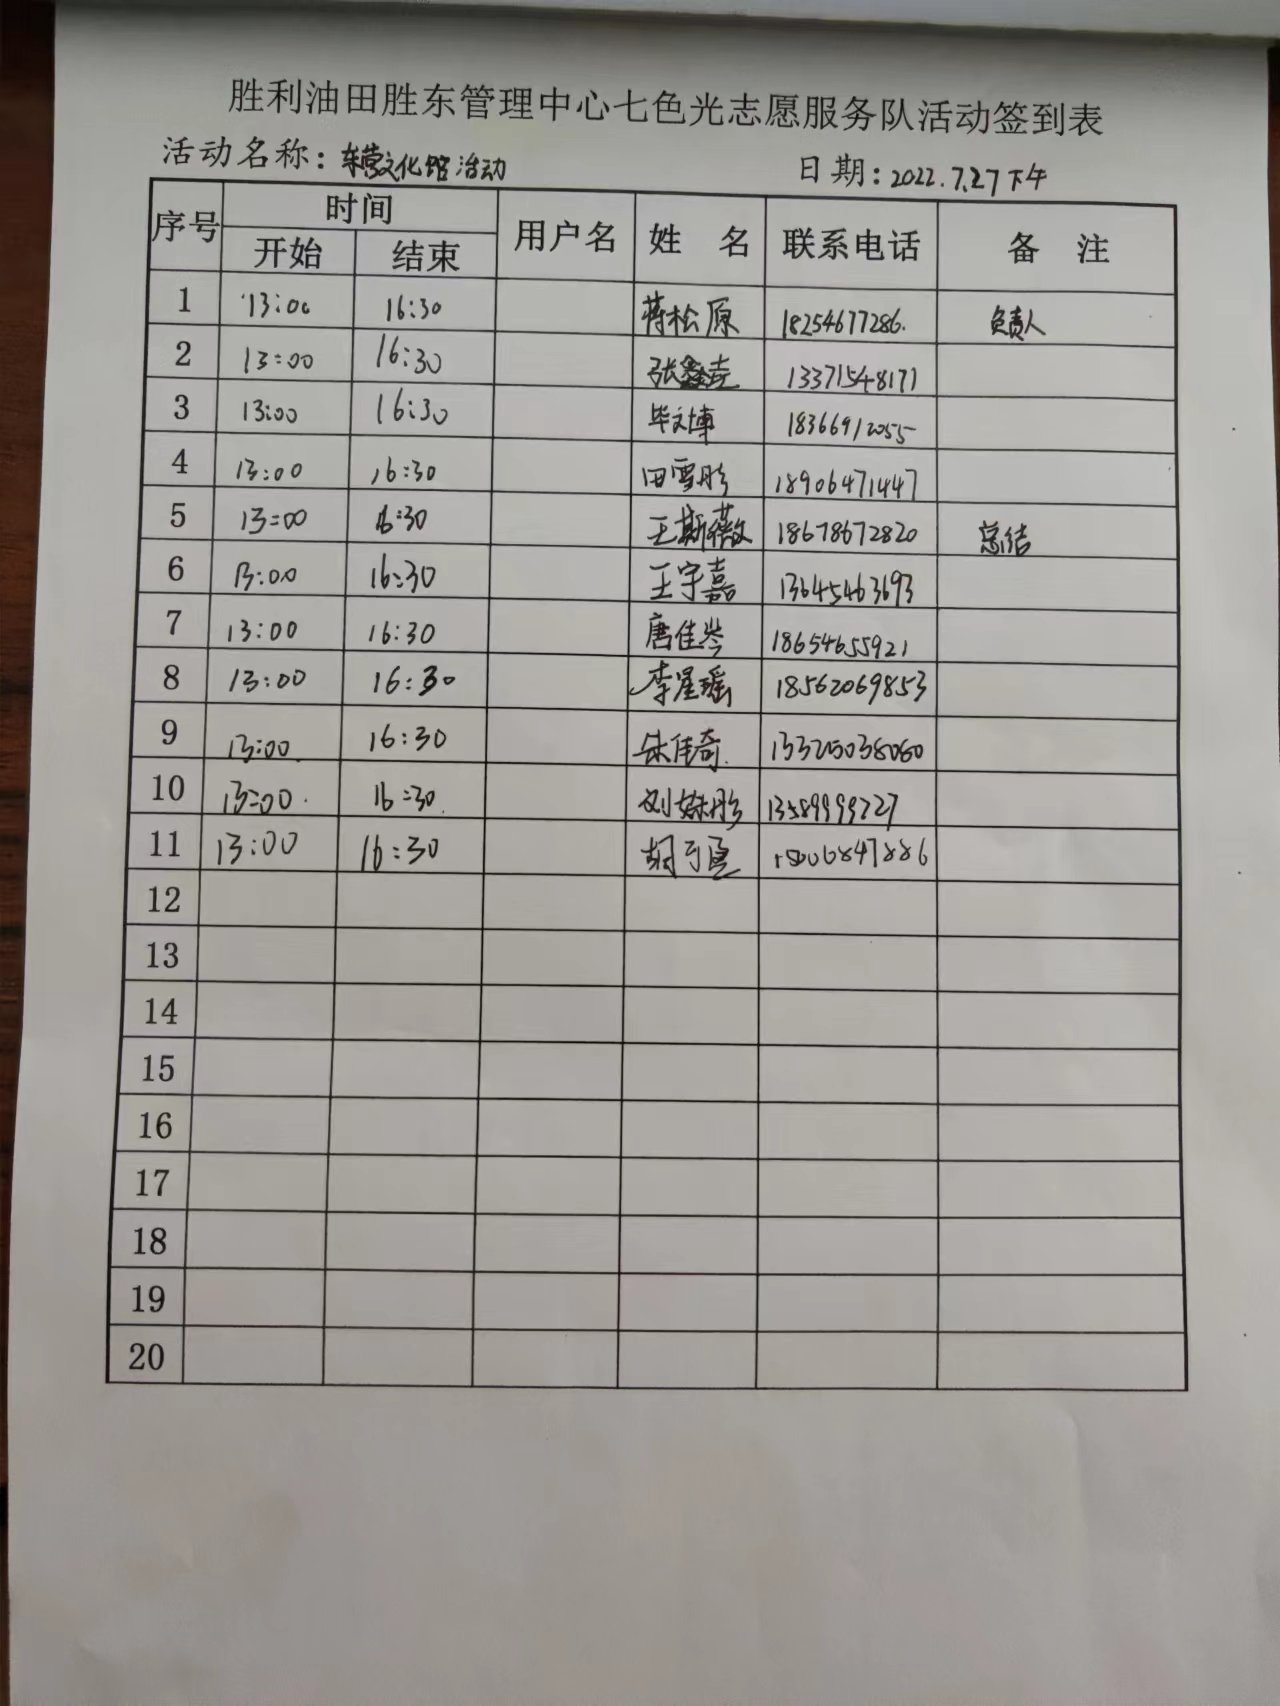 胜利油田胜东管理中心七色光志愿服务队活动签到表
活动名称：东营文化馆活动 日期：2022.7.27下午
序号 时间 用户名 姓 名 联系电话 备 注
开始 结束
1 13:00 16:30 蒋松原 18254677286. 负责人
2 13:00 16:30 张鑫垚 13371548171
3 13:00 16:30 毕文博 18366912055
4 13:00 16:30 田雪彤 18906471447
5 13:00 16:30 王斯薇 18678672820 总结
6 13:00 16:30 王宇嘉 13645463693
7 13:00 16:30 唐佳岑 18654655921
8 13:00 16:30 李星瑶 18562069853
9 13:00 16:30 朱传奇
10 13:00 16:30 刘姝彤 13589999727
11 13:00 16:30 15006847886
12
13
14
15
16
17
18
19
20